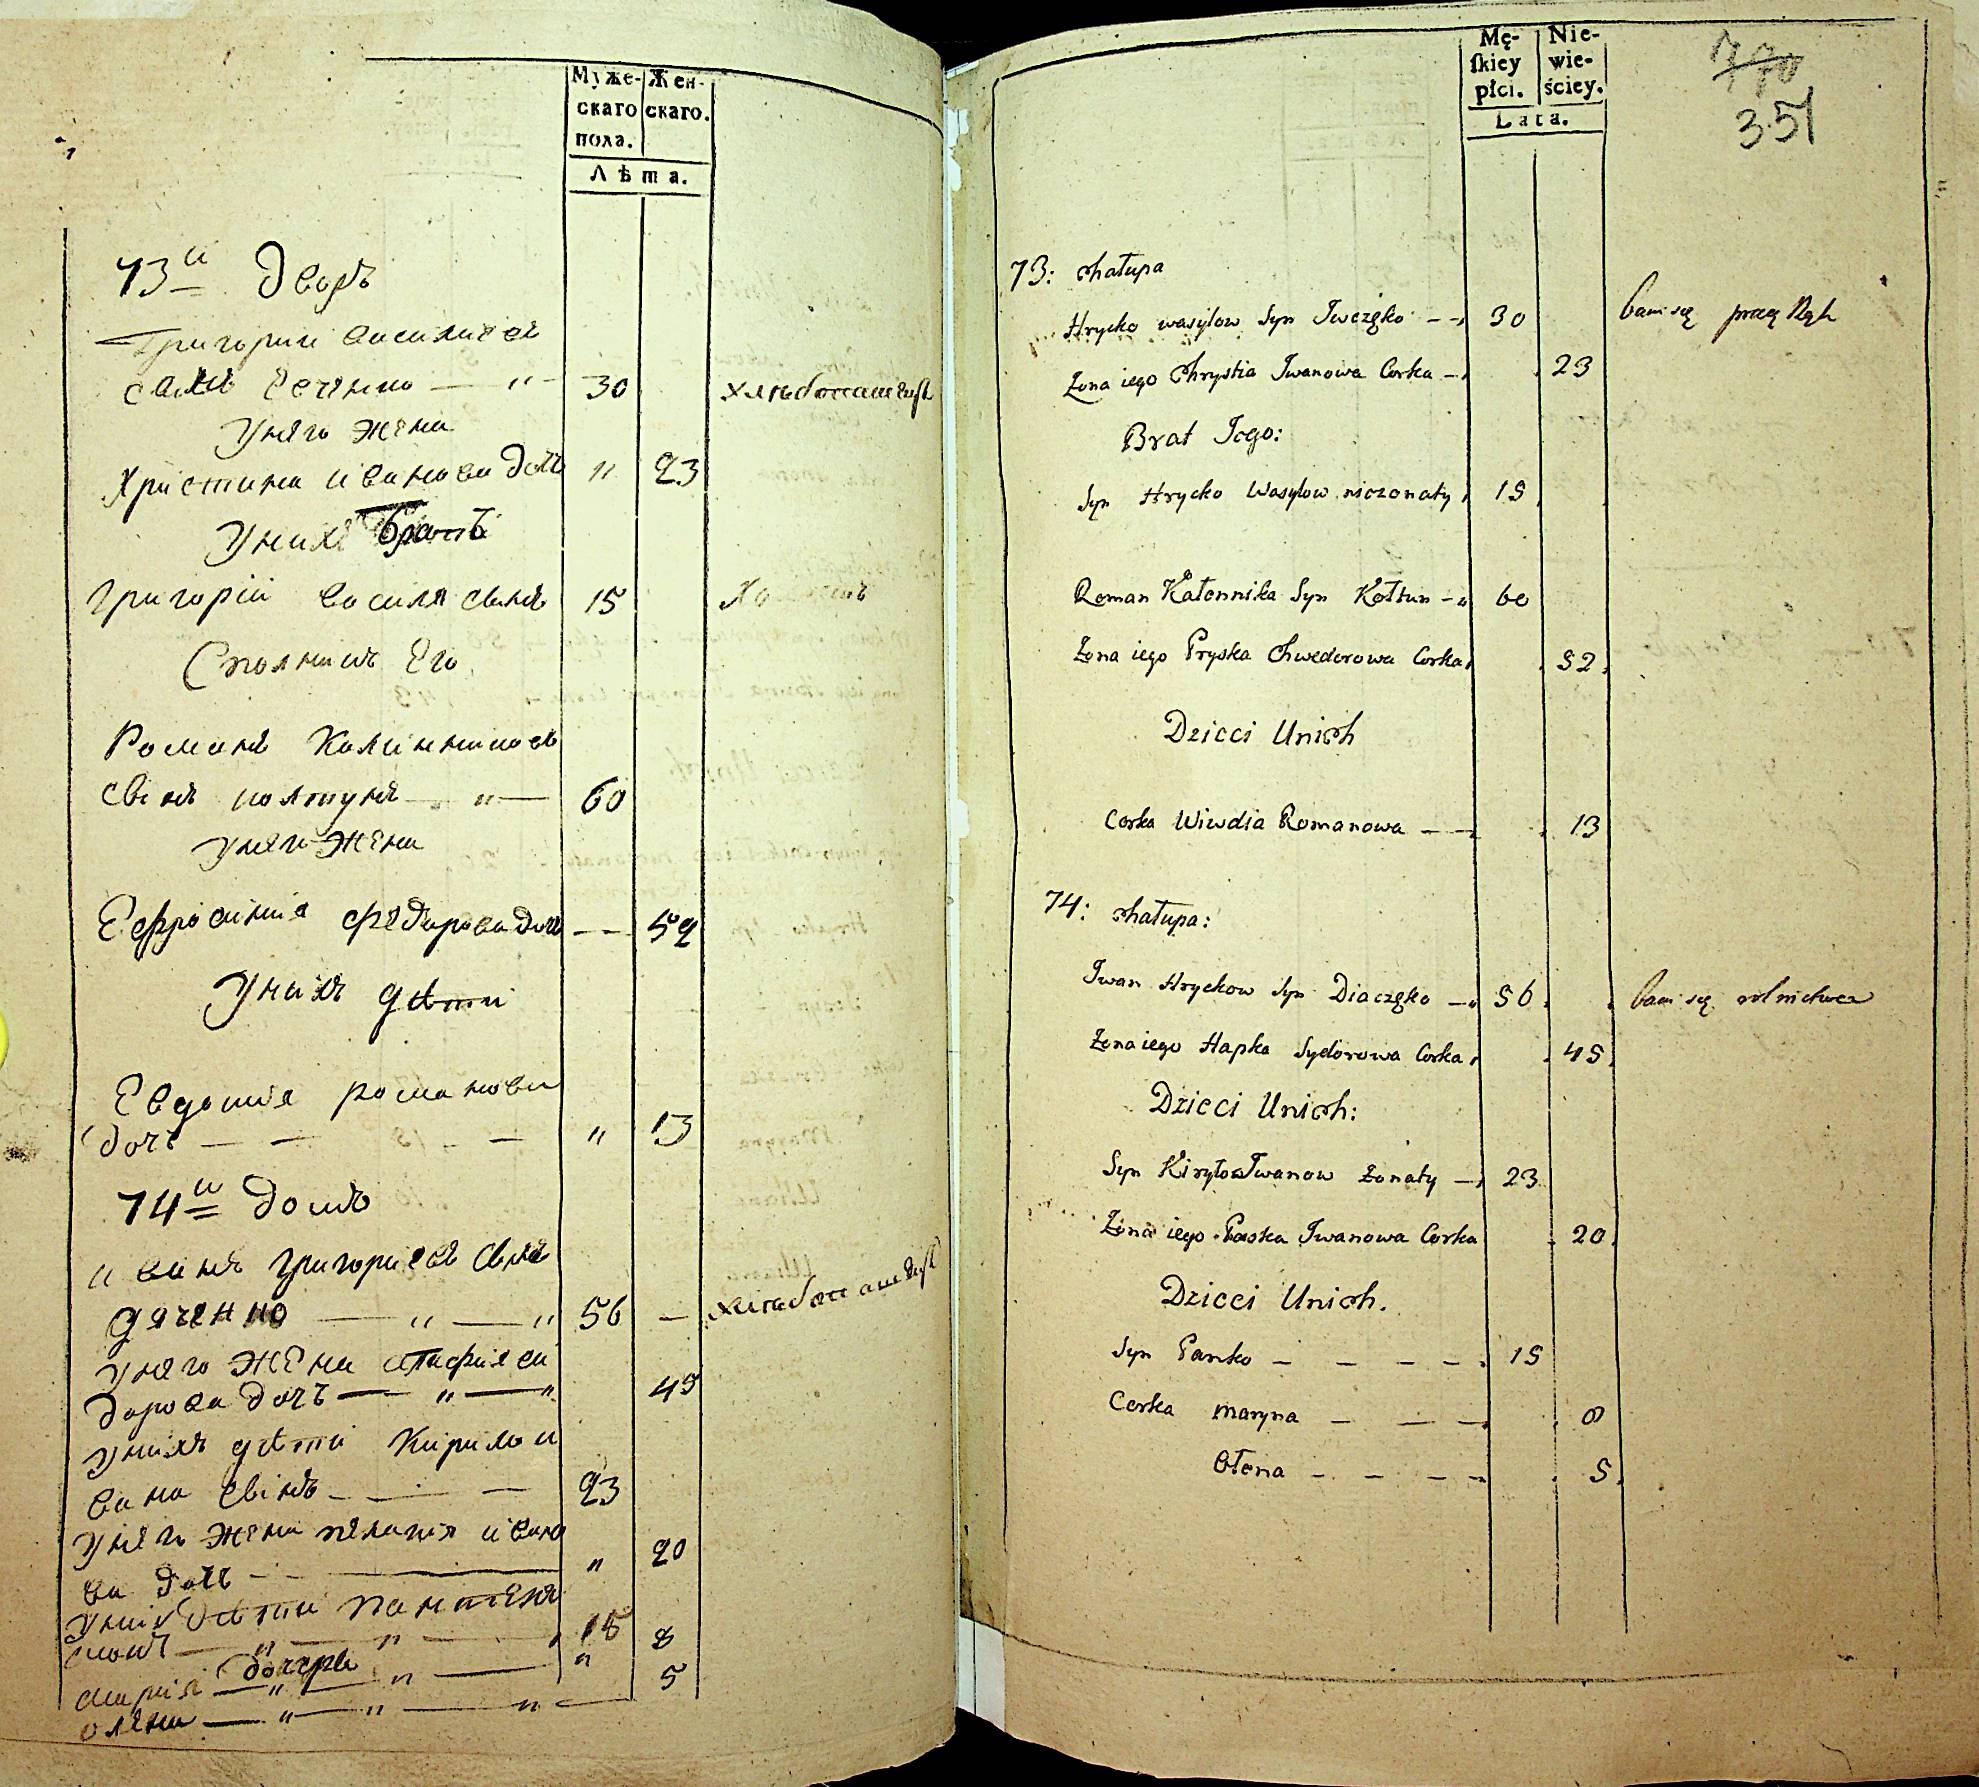 Муже-
скаго
пола.
Жен-
скаго.
Лѣта.
73й дворъ
Григорий василиевъ
синъ Iвченко — " — 30 хлѣбопашецъ
Унего жена
Христина иванова дочь " 23
Унихъ братъ
Григорій васильевъ синъ 15
Романъ Калинниковъ
свінъ колтунъ — " — 60
Унего жена
Ефросиния федорова дочь — — 52
Унихъ дѣти
Евдокия романова
дочь — — — " 13
74й домъ
иванъ григориевъ свінъ
дяченко — " — " 56 — хлѣбопашецъ
унего жена агафия си
дорова дочь — " — " 45
унихъ дѣти Кирило и
вана свінъ — — — 23
унего жена пелагия ивано
ва дочь — — " 20
унихъ дѣти
— " — " — 15 8
мария дочери " — " — " 5
олена — " — " — "
Mę-
skiey
płci.
Nie-
wie-
ściey.
Lata.
770
351
73: Chałupa
Hrycko wasylow Syn Iwczęko — 30 bawi się pracą Rąk
Zona iego Chrystia Iwanowa Corka — 23
Brat Jego:
Syn Hrycko Wasylow niezonaty 15
Roman Kalennika Syn Kołtun — 60
Zona iego Pryska Chwedorowa Corka 52
Dzieci Unich
Corka Wiwdia Romanowa — — 13
74: Chałupa:
Iwan Hryckow Syn Diaczęko — 56 bawi się rolnictwem
Zona iego Hapka Sydorowa Corka 45
Dzieci Unich:
Syn Kiryło Iwanow Zonaty — 23
Zona iego Paska Iwanowa Corka 20
Dzieci Unich.
Syn Panko — — — — 15
Corka Maryna — — — 8
Ołena — — — — 5